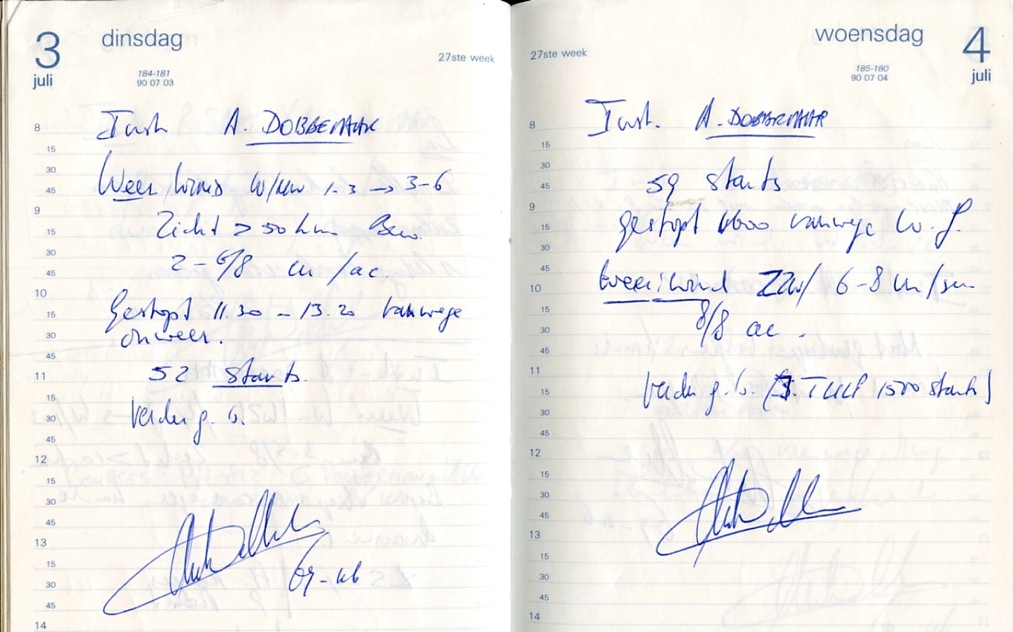 3 dinsdag
juli
184-181
90 07 03
27ste week
8
Inst. A. DOBBENAAR
15
30
Weer, Wind W/NW 1-3 → 3-6
45
9
Zicht > 50 km Bew.
15
30
2-6/8 cu/ac.
45
10
Gestopt 11.30 - 13.20 vanwege
15
30
onweer.
45
11
52 starts.
15
30
Verder g. b.
45
12
15
30
45
13
15
30
45
14
woensdag 4
juli
27ste week
185-180
90 07 04
8
Inst. A. DOBBENAAR
15
30
59 starts
45
9
gestopt 1600 vanwege
15
30
45
weer: wind ZW/ 6-8 m/sec
10
15
8/8 ac.
30
45
11
Verder g. b. (J. TULP 1500 starts)
15
30
45
12
15
30
45
13
15
30
45
14